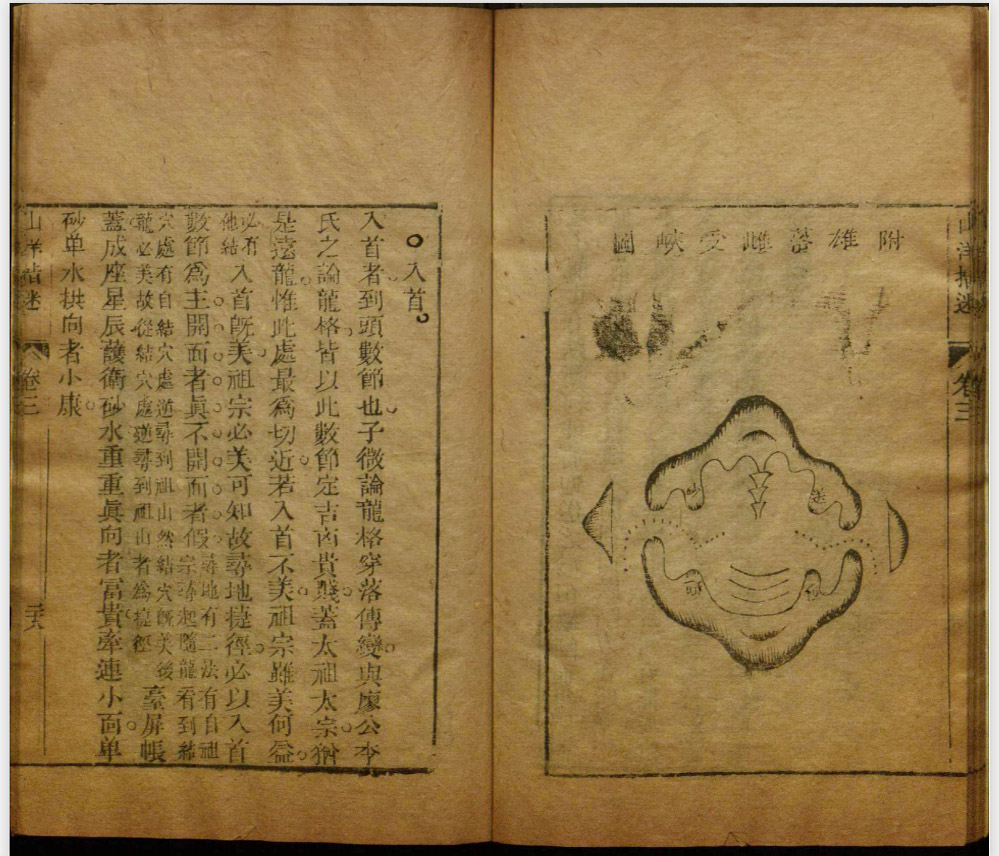 附雄落雌受峽圖
山洋指迷 卷三
○入首。
入首者到頭數節也子微論龍格穿落傳變與廖公李
氏之論龍格皆以此數節定吉凶貴賤蓋太祖太宗猶
是遠龍惟此處最爲切近若入首不美祖宗雖美何益
必有
他結
入首旣美祖宗必美可知故尋地捷徑必以入首
數節爲主開面者眞不開面者假
尋地有二法有自祖
宗尋起隨龍看到結
穴處有自結穴處逆尋到祖山然結穴旣美後
龍必美故從結穴處逆尋到祖山者爲捷徑
臺屏帳
蓋成座星辰護衛砂水重重眞向者富貴牽連小面单
砂单水拱向者小康
山洋指迷 卷三